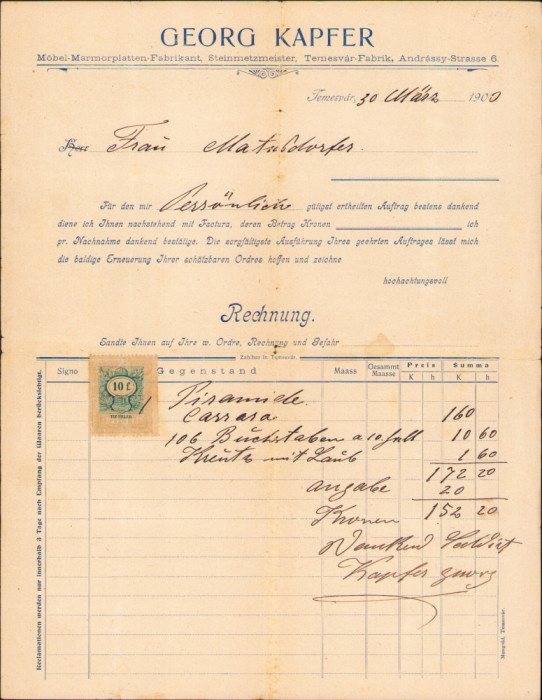 GEORG KAPFER
Möbel-Marmorplatten-Fabrikant, Steinmetzmeister, Temesvár-Fabrik, Andrássy-Strasse 6.
Temesvár, 30 März 1900
Herr Frau
Für den mir Persönliche gütigst ertheilten Auftrag bestens dankend
diene ich Ihnen nachstehend mit Factura, deren Betrag Kronen ich
pr. Nachnahme dankend bestätige. Die sorgfältigste Ausführung Ihres geehrten Auftrages lässt mich
die baldige Erneuerung Ihrer schätzbaren Ordres hoffen und zeichne
hochachtungsvoll
Rechnung.
Sandte Ihnen auf Ihre w. Ordre, Rechnung und Gefahr
Zahlbar in Temesvár.
Signo Gegenstand Maass Gesammt Maasse Preis K h Summa K h
10 f.
1 Piramide
Carrara 160
106 Buchstaben a 10 10 60
Kreutz mit Laub 1 60
172 20
angabe 20
Kronen 152 20
Dankend Saldirt
Kapfer Georg
Reclamationen werden nur innerhalb 3 Tage nach Empfang der Waaren berücksichtigt.
Mangold, Temesvár.